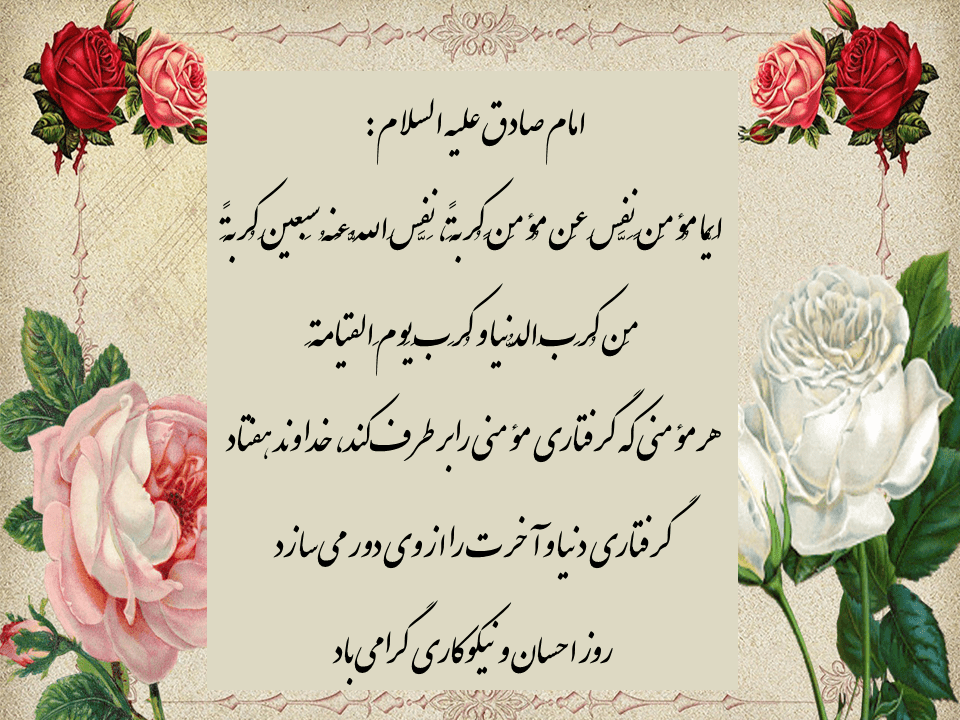 امام صادق علیه السلام :
ایما مؤمِنٍ نَفَّسَ عَن مؤمِنٍ کُربَةً، نَفَّسَ اللهُ عَنهُ سَبعین کُربَةً
مِن کُرَبِ الدُّنیا و کُرَبِ یَومِ القیامَةِ
هر مؤمنی که گرفتاری مؤمنی را بر طرف کند، خداوند هفتاد
گرفتاری دنیا و آخرت را از وی دور می سازد
روز احسان و نیکوکاری گرامی باد